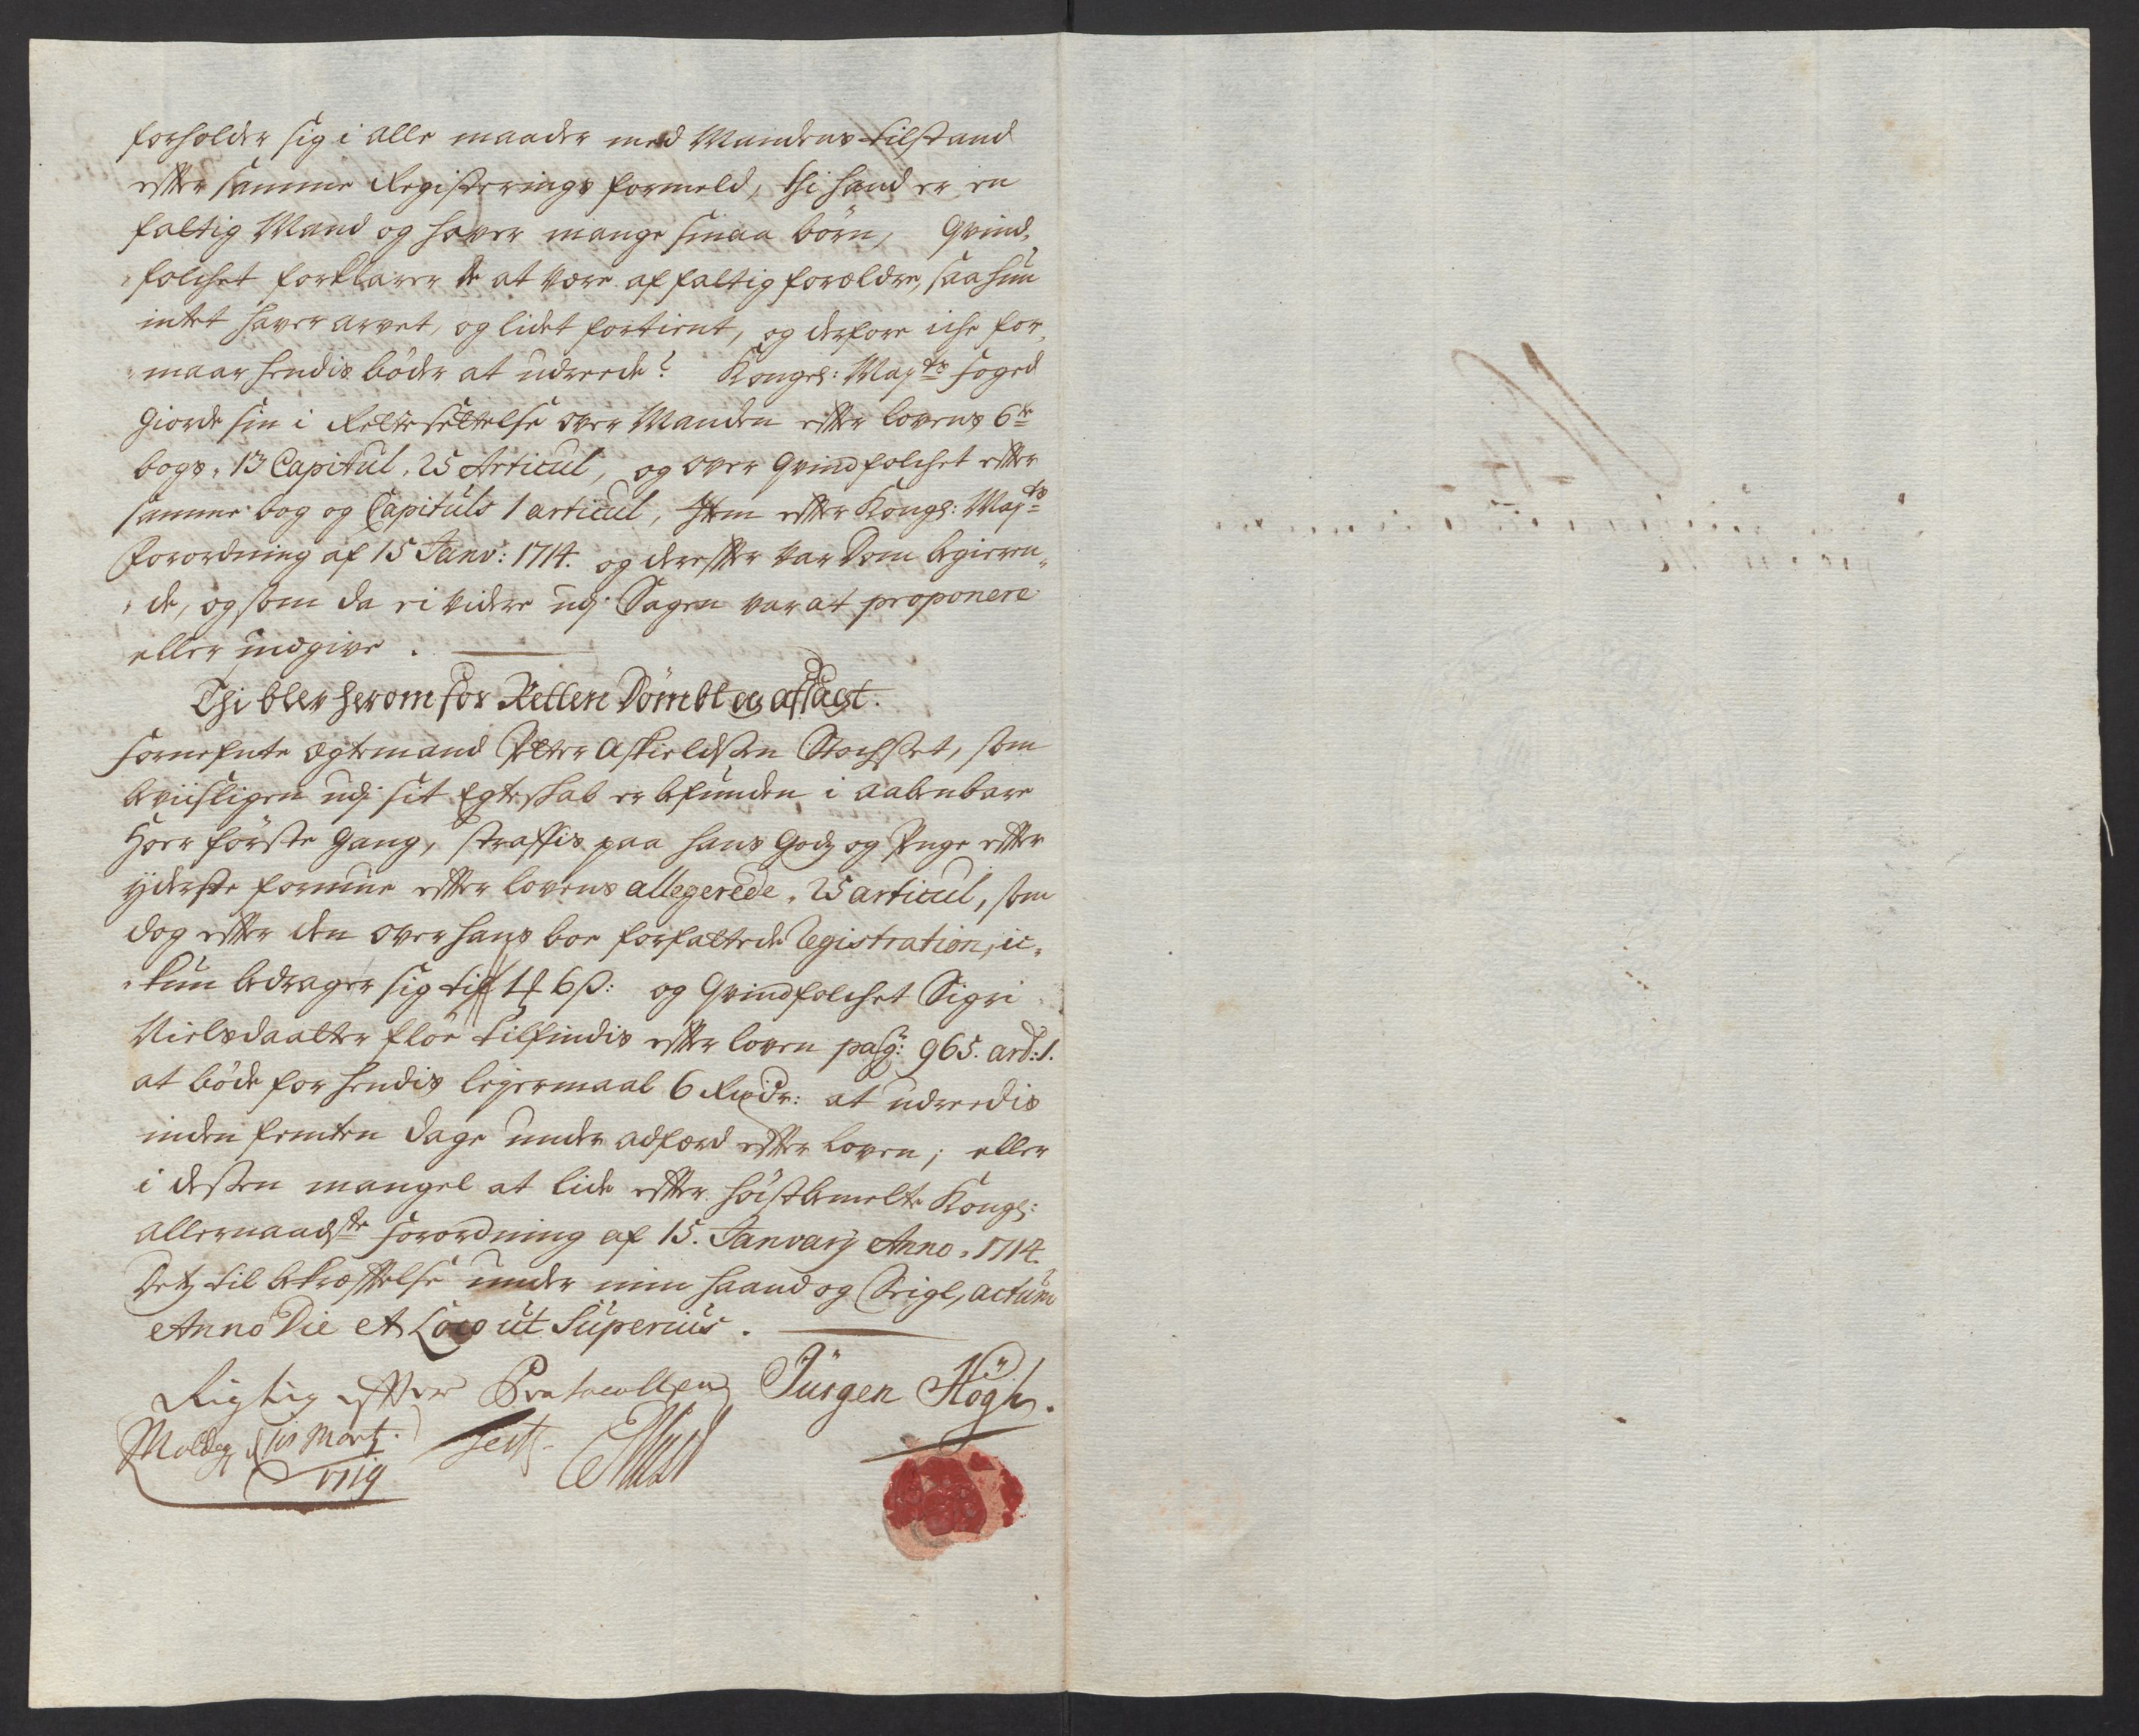 forholder sig i alle maader med Mandens tilstand
efter samme Registerings formeld, thi hand er en
fattig Mand og haver mange smaa børn, Qvind„
„folchet forklarer de at være af fattig forældre, saa hun
intet haver arvet, og lidet fortient, og derfore iche for„
„maar hendis bøder at udreede? Kongel: Mayts foged
giorde sin i Rettesettelse over Manden efter lovens 6te
bogs, 13 Capitul, 25 Articul, og over Qvindfolchet efter
samme bog og Capituls 1 articul, Item efter Kongl: Mayts
forordning af 15 Janv: 1714. og derefter var Dom begieren„
„de, og som da ei videre udj Sagen var at proponere
eller indgive.
Thi blev herom for Retten Dømbt og afsagt.
fornefnte ægtemand Petter Askieldsen Stochset, som
beviisligen udj sit Egteskab er befunden i aabenbare
Hoer første Gang, straffis paa hans Godz og Penge efter
yderste formue efter lovens allegerede 25 articul, som
dog efter den over hans boe forfattede Registration, ic„
„kun bedrager sig til 4 6 ß: og Qvindfolchet Sigri
Nielsdaatter Floe tilfindis efter loven pag: 965. art: 1.
at bøde for hendis lejermaal 6 Rixdr: at udreedis
inden femten dage under adfærd efter loven; eller
i desten mangel at lide efter høistbemelte Kongl:
allernaadste forordning af 15. Janvarij Anno 1714.
Detz til bekræftelse under min haand og Seigl, actum
Anno Die et Loco ut Superius.
Rigtig efter Protocollen Jürgen Högh.
Molde, d Mart.
1719